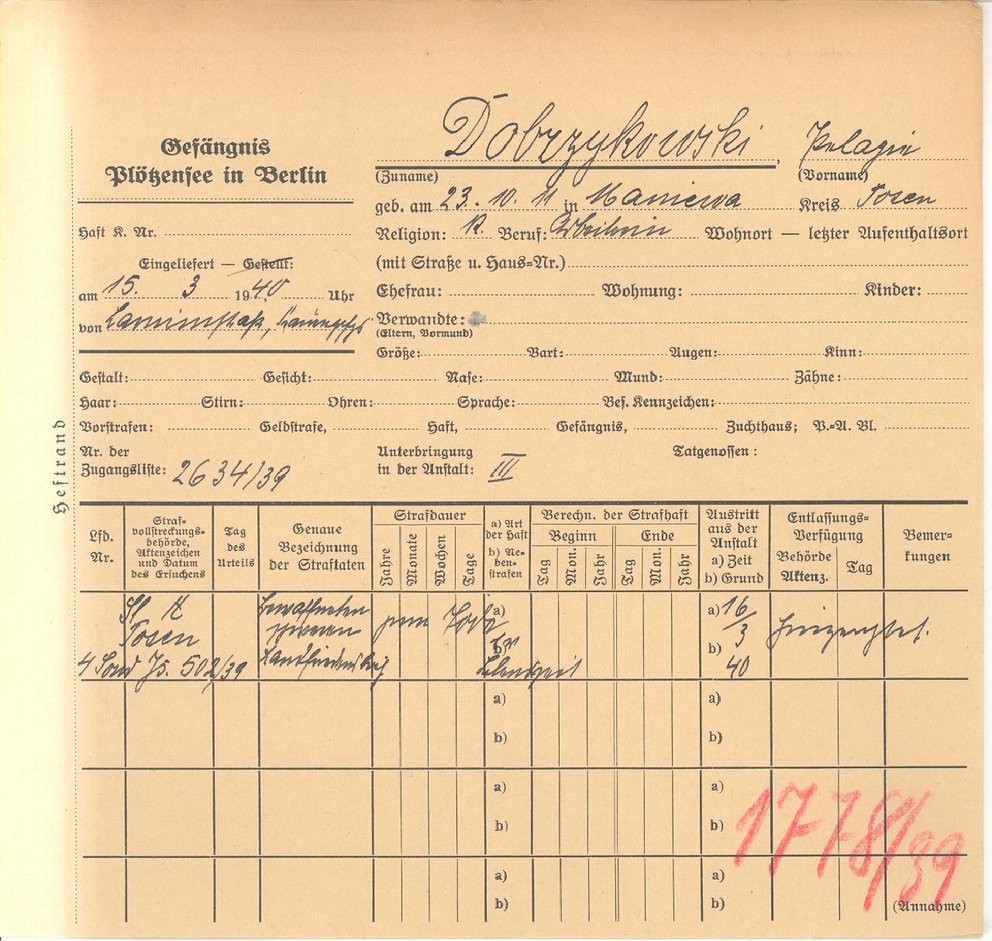 Gefängnis
Plötzensee in Berlin
Dobrzykowski, Pelagie
(Zuname) (Vorname)
geb. am 23. 10. 11 in Maniewa Kreis Posen
Religion: K. Beruf: Arbeiterin Wohnort — letzter Aufenthaltsort
(mit Straße u. Haus-Nr.)
Haft K. Nr.
Eingeliefert — Gestellt:
am 15. 3 1940. Uhr
von
Ehefrau: Wohnung: Kinder:
Verwandte:
(Eltern, Vormund)
Größe: Bart: Augen: Kinn:
Gestalt: Gesicht: Nase: Mund: Zähne:
Haar: Stirn: Ohren: Sprache: Bes. Kennzeichen:
Vorstrafen: Geldstrafe, Haft, Gefängnis, Zuchthaus; P.-A. Bl.
Nr. der
Zugangsliste: 2634/39
Unterbringung
in der Anstalt: III
Tatgenossen:
Heftrand
Lfd.
Nr.
Straf-
vollstreckungs-
behörde,
Aktenzeichen
und Datum
des Ersuchens
Tag
des
Urteils
Genaue
Bezeichnung
der Straftaten
Strafdauer
Jahre Monate Wochen Tage
a) Art
der Haft
b) Ne-
ben-
strafen
Berechn. der Strafhaft
Beginn Ende
Tag Mon. Jahr Tag Mon. Jahr
Austritt
aus der
Anstalt
a) Zeit
b) Grund
Entlassungs-
Verfügung
Behörde
Aktenz.
Tag
Bemer-
kungen
St A
Posen
4 Sond Js. 502/39
bewaffneten
schweren
Landfriedensbruch
zum Tode
a)
b)
a) 16/3
b) 40
hingerichtet.
a) a)
b) b)
a) a)
b) b)
a) a)
b) b)
1778/39
(Annahme)